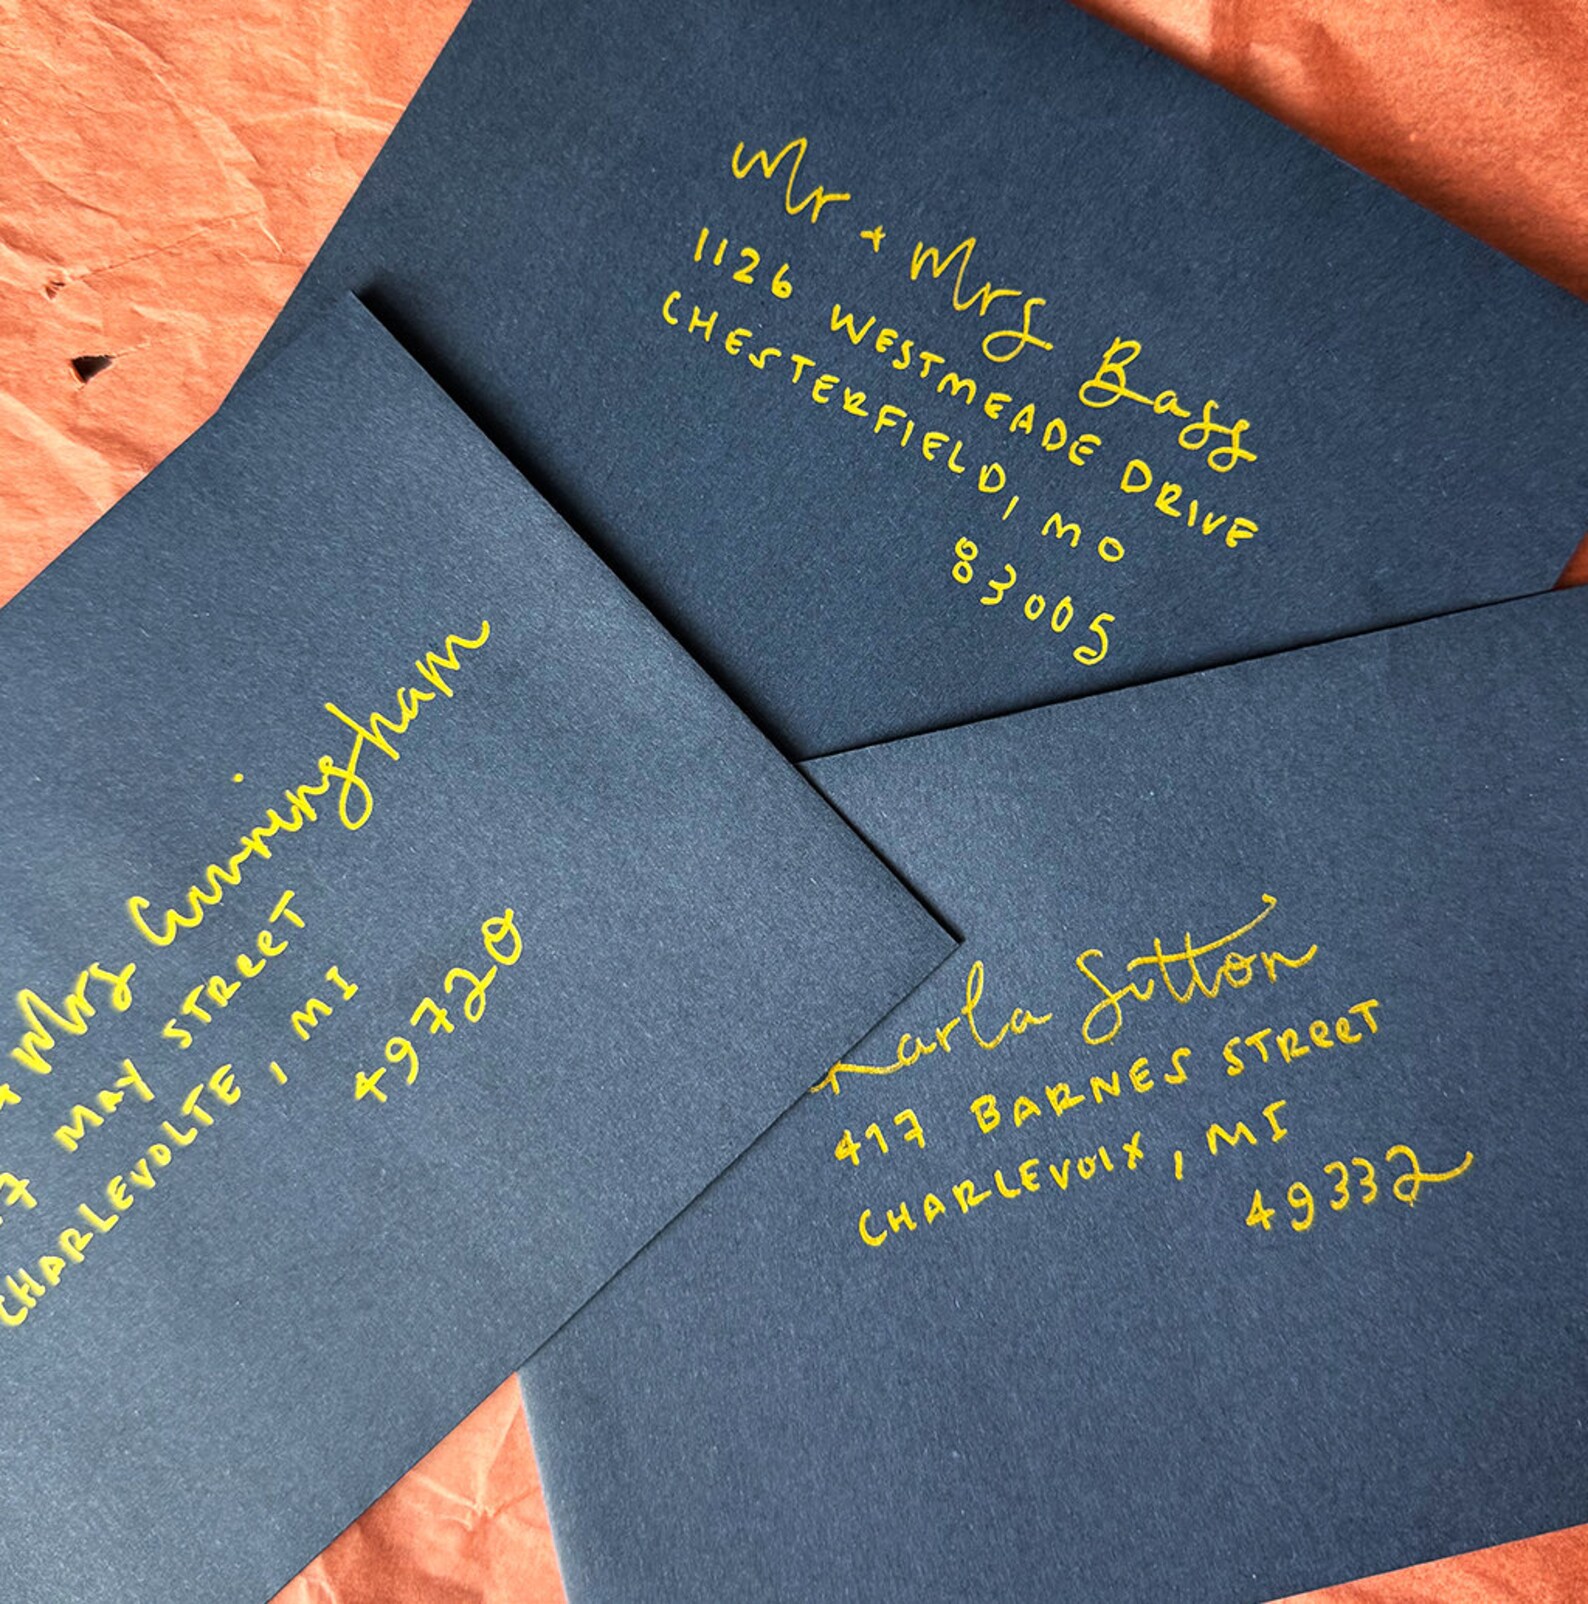 Mr + Mrs Bass
1126 WESTMEADE DRIVE
CHESTERFIELD, MO
83005
+ Mrs Cunningham
7 MAY STREET
CHARLEVOLTE, MI
49720
Karla Sutton
417 BARNES STREET
CHARLEVOIX, MI
49332